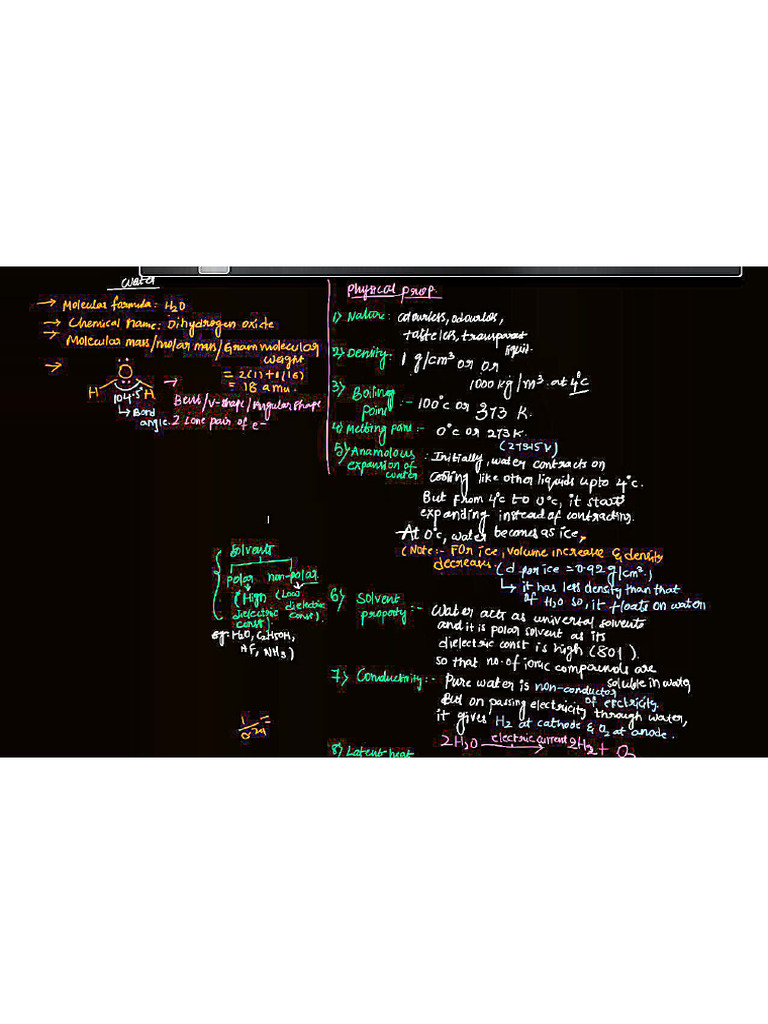 Water
→ Molecular formula: H2O
→ Chemical name: Dihydrogen oxide
→ Molecular mass/molar mass/Gram molecular
weight
= 2(1)+1(16)
= 18 amu.
→
O
H H
104.5°
→ Bent/V-shape/Angular shape
↳ Bond
angle. 2 lone pair of e-
Physical prop.
1) Nature: colourless, odourless,
tasteless, transparent
liquid.
2) Density: 1 g/cm3 or or
1000 kg/m3 at 4°C
3) Boiling
Point :- 100°C or 373 K.
4) Melting point :- 0°C or 273 K.
(273.15 K)
5) Anamolous
expansion of
water
: Initially, water contracts on
cooling like other liquids upto 4°C.
But from 4°C to 0°C, it starts
expanding instead of contracting.
At 0°C, water becomes as ice.
(Note:- For ice, volume increase & density
decreases (d for ice = 0.92 g/cm3.)
↳ it has less density than that
of H2O so, it floats on water
6) Solvent
property :-
Water acts as universal solvents
and it is polar solvent as its
dielectric const is high (801).
so that no. of ionic compounds are
soluble in water
7) Conductivity :- Pure water is non-conductor
of electricity.
But on passing electricity through water,
it gives H2 at cathode & O2 at anode.
2H2O electric current → 2H2 + O2
8) Latent heat
Solvents
polar non-polar
(High
dielectric
const).
(Low
dielectric
const).
eg: H2O, C2H5OH,
HF, NH3)